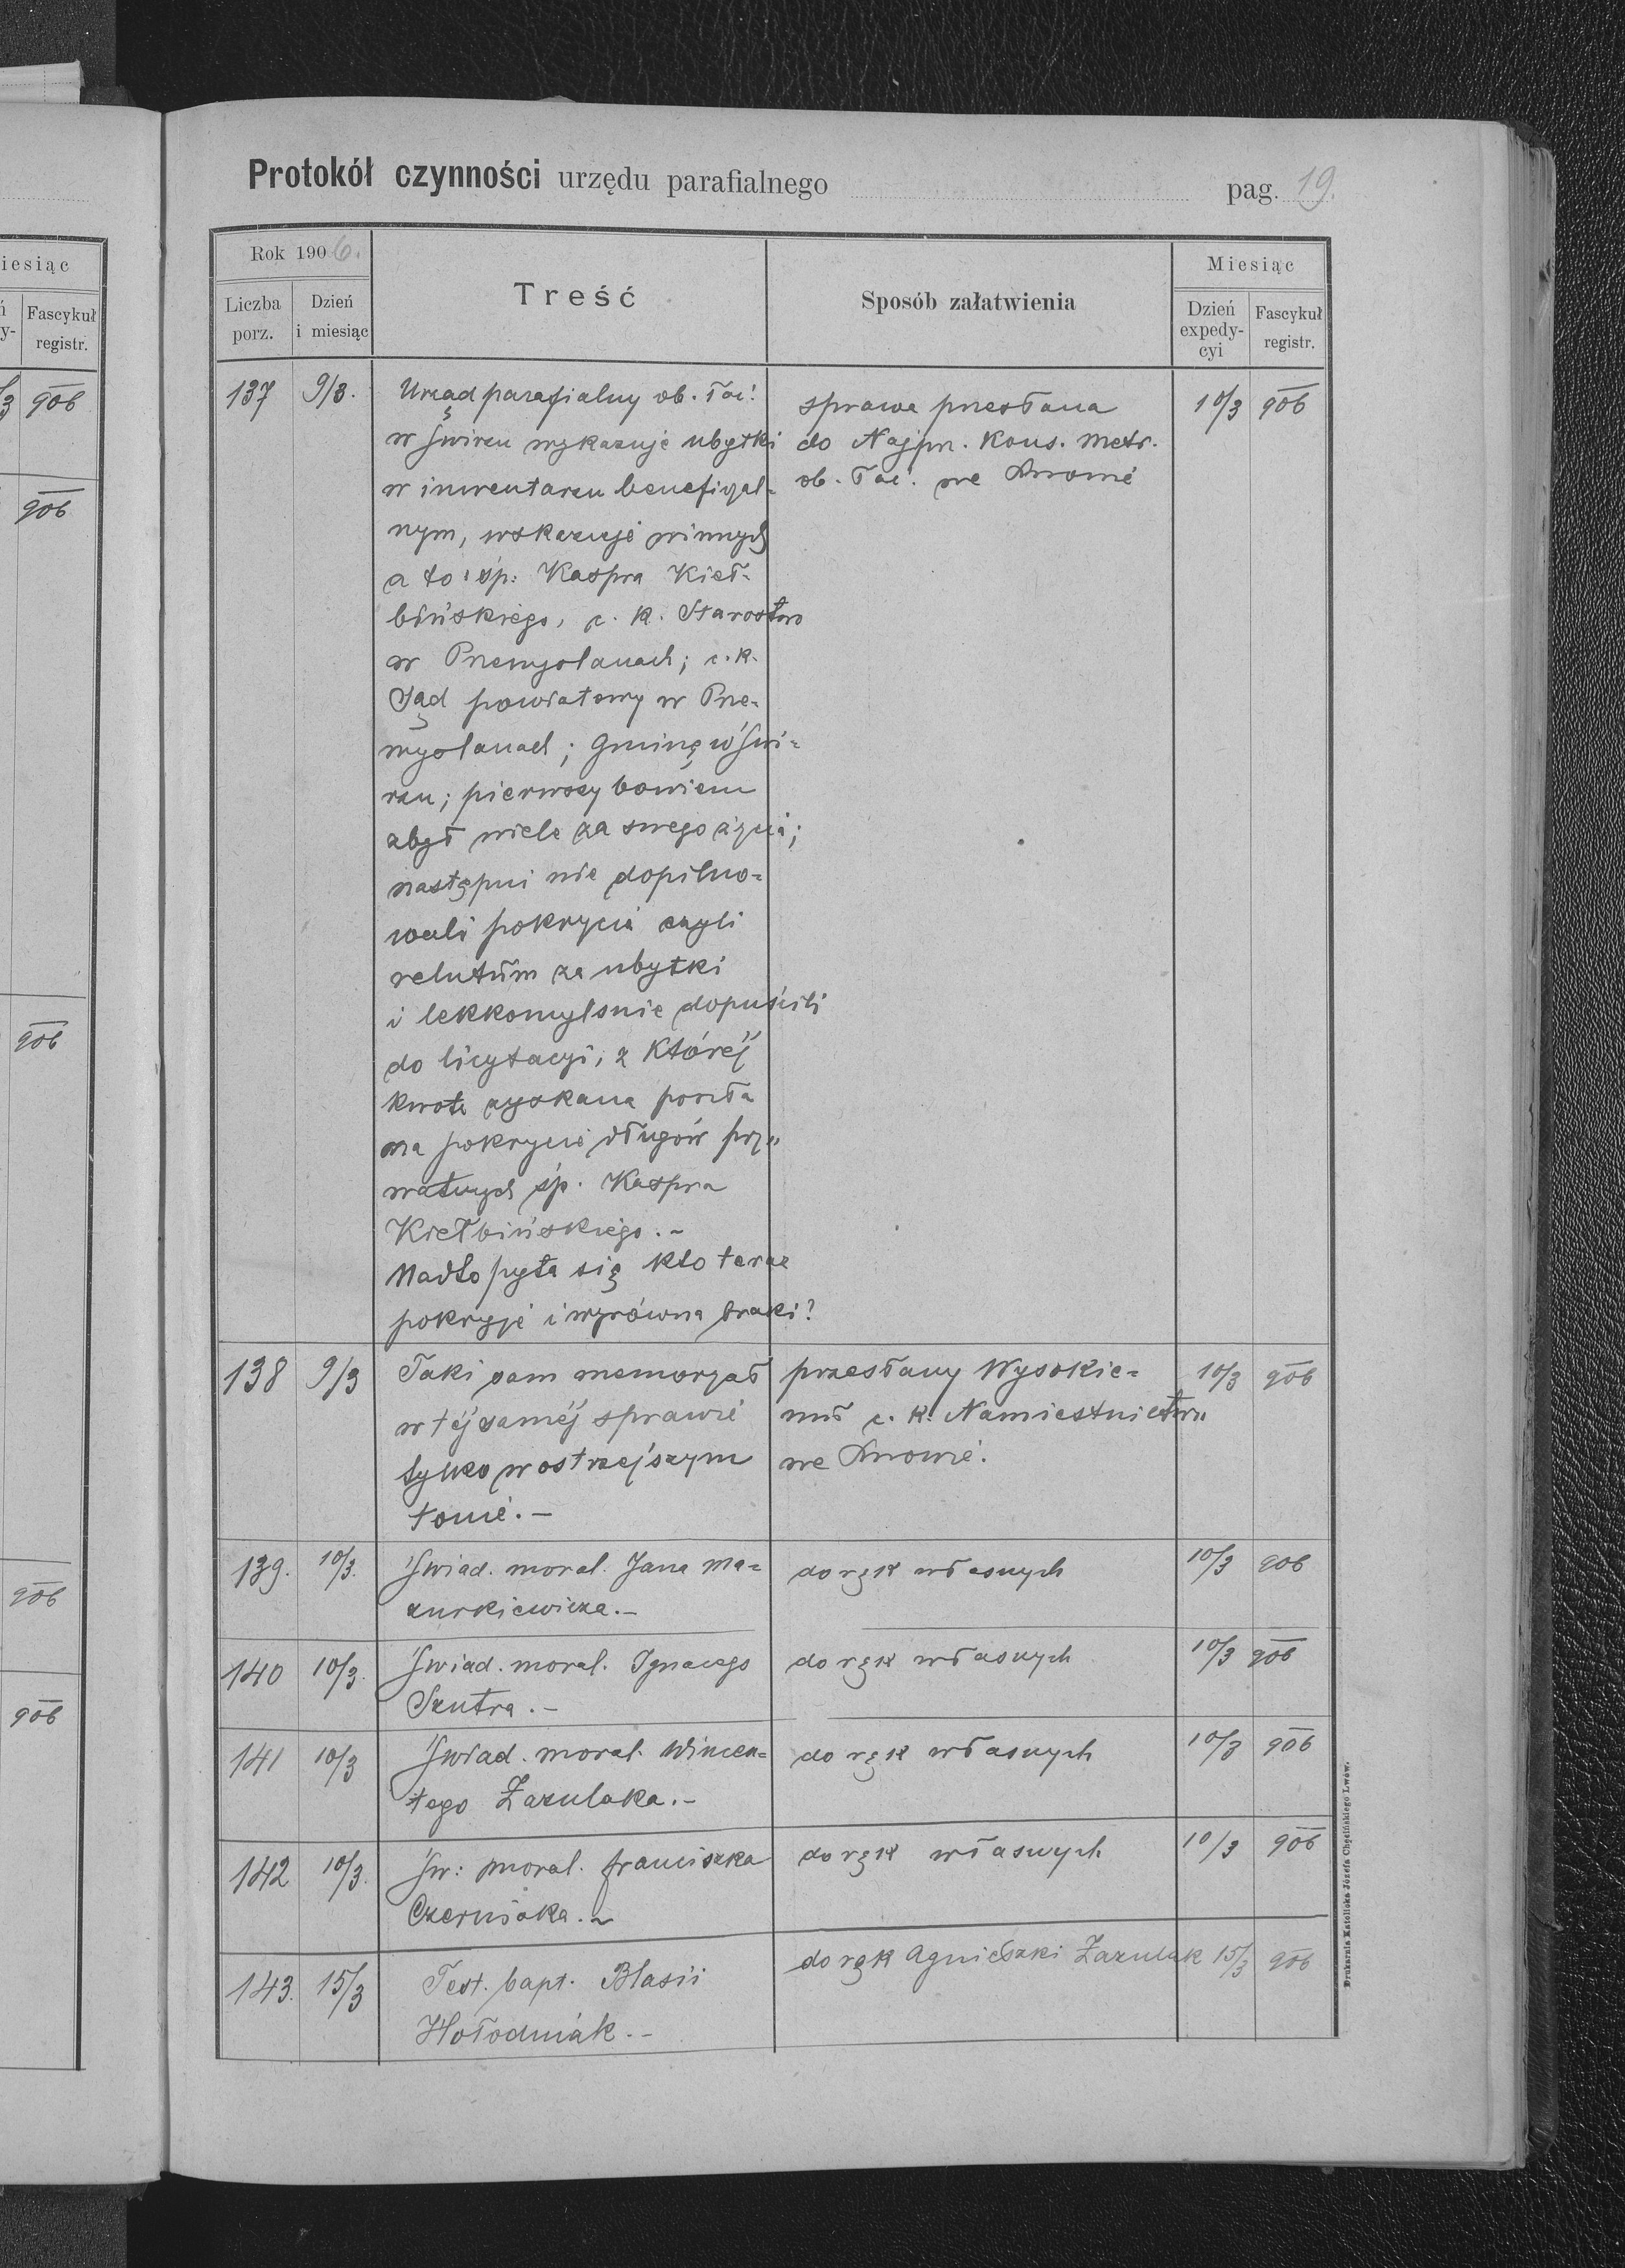 Protokół czynności urzędu parafialnego
pag. 19.
Rok 1906.
Liczba porz.
Dzień i miesiąc
Treść
Sposób załatwienia
Miesiąc
Dzień expedycyi
Fascykuł registr.
iesiąc
Fascykuł
registr.
906
906
906
906
906
137 9/3. Urząd parafialny ob. łać. sprawa przesłana 10/3 906
w Świrzu wykazuje ubytki do Najprz. Kons. Metr.
w inwentarzu beneficyal- ob. łać. we Lwowie
nym, wskazuje winnych
a to: śp: Kaspra Kieł-
bińskiego, c. k. Starostwo
w Przemyślanach; c. k.
Sąd powiatowy w Prze-
myślanach; Gminę w Świ-
rzu; pierwszy bowiem
zbył wiele za swego życia;
następni nie dopilno-
wali pokrycia czyli
relutum za ubytki
i lekkomyślnie dopuścili
do licytacyi, z której
kwota zyskana poszła
na pokrycie długów pry-
watnych śp. Kaspra
Kiełbińskiego.-
Nadto pyta się kto teraz
pokryje i wyrówna braki?
138 9/3 Taki sam memoryał przesłany Wysokie- 10/3 906
w tej samej sprawie mu c. k. Namiestnictwu
tylko w ostrzejszym we Lwowie.
tonie.-
139. 10/3. Świad. moral. Jana Ma- do rąk własnych 10/3 906
zurkiewicza.-
140 10/3. Świad. moral. Ignacego do rąk własnych 10/3 906
Szutra.-
141 10/3 Świad. moral. Wincen- do rąk własnych 10/3 906
tego Zazulaka.-
142 10/3. Św: moral. Franciszka do rąk własnych 10/3 906
Czerniaka.-
143. 15/3 Test. bapt. Blasii do rąk Agnieszki Zazulak 15/3 906
Hołodniak.-
Drukarnia Katolicka Józefa Chęcińskiego Lwów.